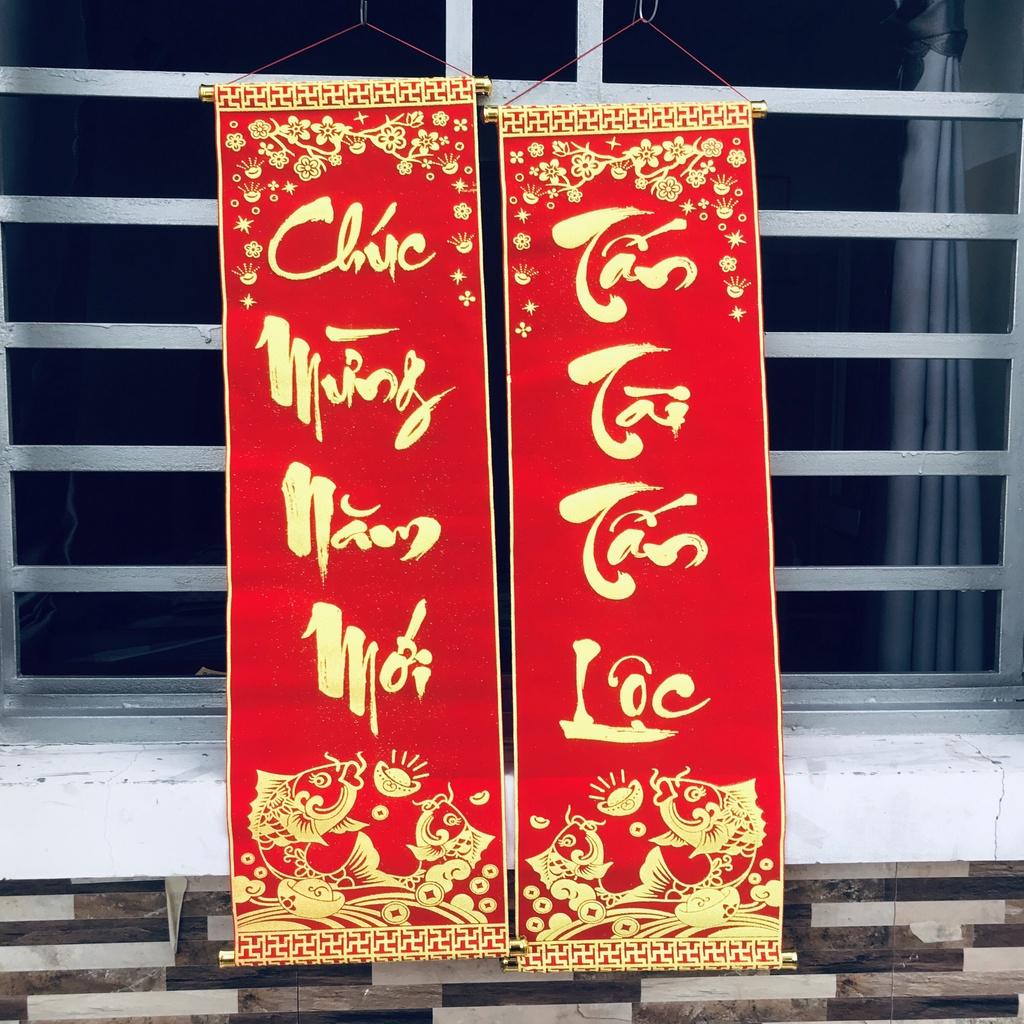 Chúc
Mừng
Năm
Mới
Tấn
Tài
Tấn
Lộc